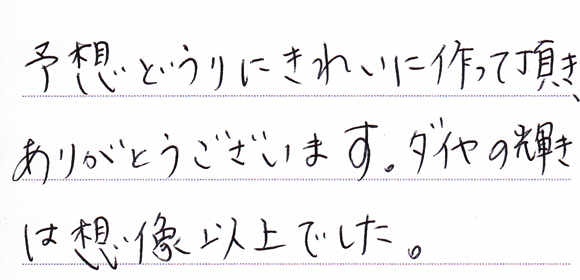 予想どうりにきれいに作って頂き、
ありがとうございます。ダイヤの輝き
は想像以上でした。